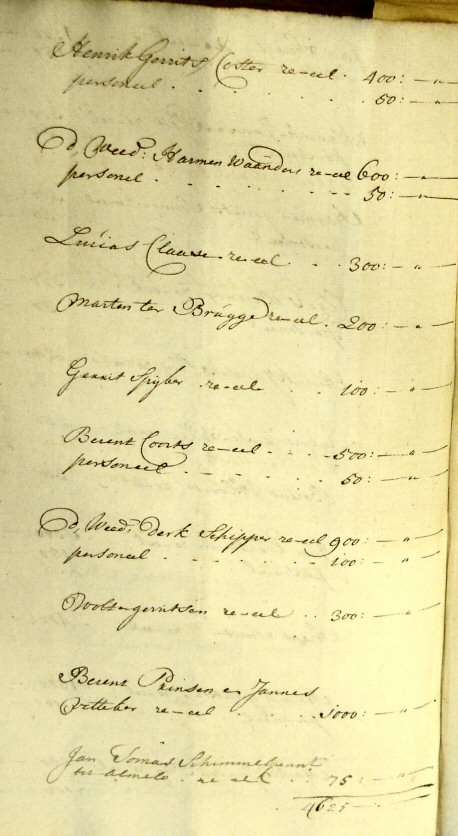 Henrik Gerrits Coster re-eel . 400: — „ —
personeel . . . . . 50: — „ —
D Weed: Harmen Waanders re-eel 600: — „ —
personeel . . . . . . 50: — „ —
Lucas Claase re-eel . . 300: — „ —
Marten ter Brügge re-eel . 200: — „ —
Gerrit Spijker re-eel . . 100: — „ —
Berent Coorts re-eel . . . 500: — „ —
personeel . . . . . 50: — „ —
D Weed: Derk Schipper re-eel 900: — „ —
personeel . . . . . . 100: — „ —
Roelof gerritsen re-eel . . 300: — „ —
Berent Prinsen en Jannes
re-eel . . . 1000: — „ —
Jan Tomas Schimmelpennk
tot Almelo . re eel . . 75: — „ —
4625 —